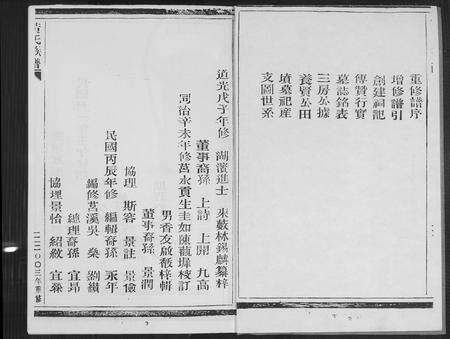 重修譜序
增修譜引
創建祠記
傳贊行實
墓誌銘表
三房公據
養賢公田
墳墓祀產
支圖世系
氏族譜
道光戊子年修 湖濱進士 來薮林錫麒纂梓
董事裔孫 上詩 上開 九高
同治辛未年修萬永貢生圭如陳觀墀校訂
男香友啟馥梓輯
董事裔孫 景潤
協理 斯容 景註 景儉
民國丙辰年修 編輯裔孫 永年
編修莒溪吳燊 劉績
總理裔孫 宜昂
協理景怡 紹敘 宜
二〇〇三年重纂